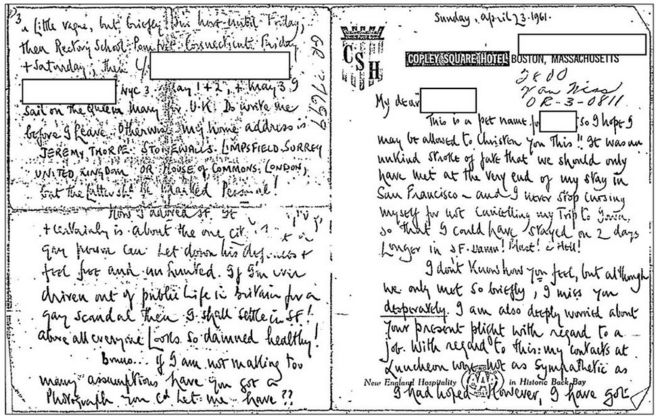 3.
a little vague, but briefly
then Rectory School Pomfret Connecticut Friday
+ Saturday, then
NYC 3. May 1+2, + May 3 I
sail on the Queen Mary for U.K. Do write me
before I leave. Otherwise my home address is
JEREMY THORPE. STONEWALLS. LIMPSFIELD. SURREY
UNITED KINGDOM or HOUSE of COMMONS. LONDON,
but the latter shd be marked Personal!
How I adored SF.
+ certainly is about the one city
gay person can let down his defenses +
feel free and unhunted. If I'm ever
driven out of public life in Britain for a
gay scandal then I shall settle in SF!
above all everyone looks so damned healthy!
Bruno. If I am not making too
many assumptions have you got a
Photograph you cd let me have??
GR-77697
Sunday, April 23. 1961.
CSH
COPLEY SQUARE HOTEL BOSTON, MASSACHUSETTS
2800
Van Ness
OR-3-0811
My dear
This is a pet name for so I hope I
may be allowed to christen you This!! It was an
unkind stroke of fate that we should only
have met at the very end of my stay in
San Francisco - and I never stop cursing
myself for not cancelling my trip to
so that I could have stayed on 2 days
longer in SF. Damn! Blast! + Hell!
I don't know how you feel, but although
we only met so briefly, I miss you
desperately. I am also deeply worried about
your present plight with regard to a
job. With regard to this: my contacts at
Luncheon were not as sympathetic as
New England Hospitality in Historic Back Bay
I had hoped. However, I have got